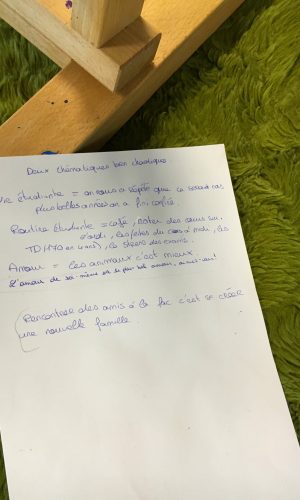 Deux thématiques bien chaotiques
Vie étudiante = on nous a répété que ce serait nos
plus belles années on a fini confiné.
Routine étudiante = café, rater des cours
les fêtes du lundi au lundi, les
TD, le stress des exams.
Amour = les animaux c'est mieux
L'amour de soi-même est le plus bel amour,
Rencontrer des amis à la fac c'est se créer
une nouvelle famille.